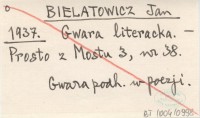 BIELATOWICZ Jan
1937. Gwara literacka. –
Prosto z Mostu 3, nr 38.
Gwara podh. w poezji.
BJ 1004/0998